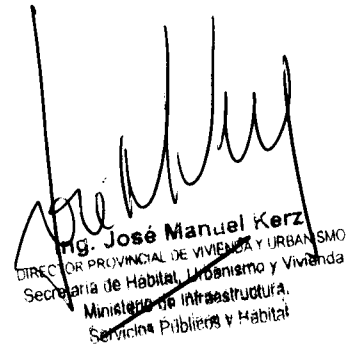 José Kerz
Ing. José Manuel Kerz
DIRECTOR PROVINCIAL DE VIVIENDA Y URBANISMO
Secretaría de Hábitat, Urbanismo y Vivienda
Ministerio de Infraestructura,
Servicios Públicos y Hábitat